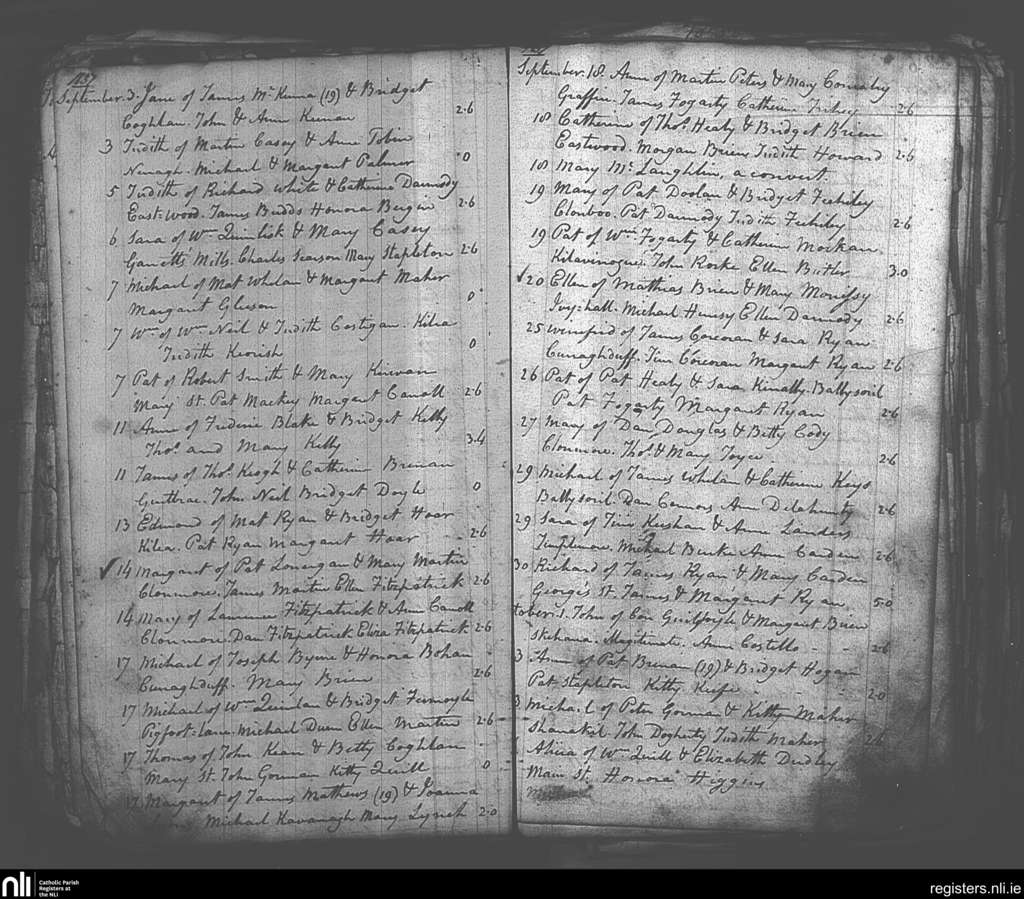 September. 3. Jane of James McKenna (19) & Bridget
Coghlan. John & Anne Keenan 2.6
3 Judith of Martin Casey & Anne Tobin
Nenagh. Michael & Margaret Palmer 0
5 Judith of Richard White & Catherine Darmody
East-wood. James Budds Honora Bergin 2.6
6 Sara of Wm Quinlisk & Mary Casey
Garretts Mills. Charles Mary Stapleton 2.6
7 Michael of Mat Whelan & Margaret Maher
Margaret Gleeson 0
7 Wm of Wm Neil & Judith Costigan. Kilea
Judith 0
7 Pat of Robert Smith & Mary Kirwan
Mary St. Pat Mackey Margaret Carroll 2.6
11 Anne of Frederic Blake & Bridget Kelly
Thos. and Mary Kelly 3.4
11 James of Thos. Keogh & Catherine Brenan
John Neil Bridget Doyle 0
13 Edmond of Mat Ryan & Bridget Hoar
Kilea. Pat Ryan Margaret Hoar 2.6
14 Margaret of Pat Lonergan & Mary Martin
Clonmore. James Martin Ellen Fitzpatrick 2.6
14 Mary of Laurence Fitzpatrick & Ann Carroll
Clonmore. Dan Fitzpatrick Eliza Fitzpatrick 2.6
17 Michael of Joseph Byrne & Honora Bohan
Cunaghduff. Mary Brien 2.6
17 Michael of Wm Quinlan & Bridget Fermoyle
Pigfoot-lane. Michael Ellen Martin 2.6
17 Thomas of John Kean & Betty Coghlan
Mary St. John Gorman Kitty Quill 0
17 Margaret of James Mathews (19) & Joanna
Michael Kavanagh Mary Lynch 2.0
September. 18. Anne of Martin Peters & Mary Cormaby
Graffin. James Fogarty Catherine 2.6
18 Catherine of Thos. Healy & Bridget Brien
Eastwood. Morgan Brien Judith Howard 2.6
18 Mary McLaughlin, a convert
19 Mary of Pat Doolan & Bridget Fehiley
Clonboo. Pat Darmody Judith Fehiley 2.6
19 Pat of Wm Fogarty & Catherine Mockan
John Rorke Ellen Butler 3.0
20 Ellen of Matthias Brien & Mary Morrissy
Ivy-hall. Michael Ellen Darmody 2.6
25 Winifred of James Corcoran & Sara Ryan
Cunaghduff. Tim Corcoran Margaret Ryan 2.6
26 Pat of Pat Healy & Sara Kinally. Ballysoril
Pat Fogarty Margaret Ryan 2.6
27 Mary of Dan Douglas & Betty Cody
Clonmore. Thos. & Mary Joyce 2.6
29 Michael of James Whelan & Catherine Keys
Ballysoril. Dan Connors Ann Delahunty 2.6
29 Sara of Tim Keeshan & Anne Landers
Templemore. Michael Burke Anne Carden 2.6
30 Richard of James Ryan & Mary Carden
George's St. James & Margaret Ryan 5.0
tober. 1. John of Con Guilfoyle & Margaret Brien
Skehana. Illegitimate. Anne Costello 2.6
3 Anne of Pat Brenan (19) & Bridget Hogan
Pat Stapleton Kitty Keefe 2.0
3 Michael of Peter Gorman & Kitty Maher
Shanakil John Dogherty Judith Maher 2.6
Alicia of Wm Quill & Elizabeth Dudley
Main St. Honora Higgins
nli Catholic Parish
Registers at
the NLI
registers.nli.ie